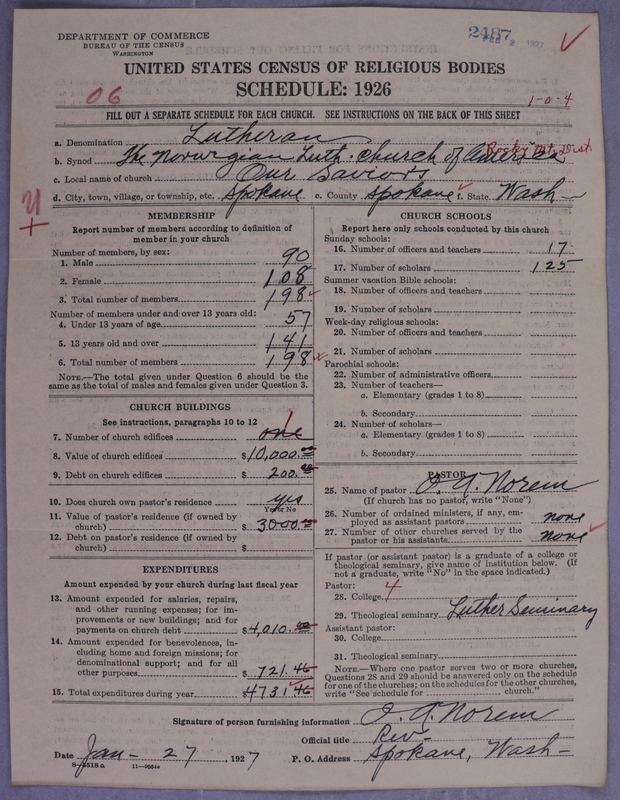 DEPARTMENT OF COMMERCE
BUREAU OF THE CENSUS
WASHINGTON
2487
FEB 2 1927
UNITED STATES CENSUS OF RELIGIOUS BODIES
SCHEDULE: 1926
06
1-0-4
FILL OUT A SEPARATE SCHEDULE FOR EACH CHURCH. SEE INSTRUCTIONS ON THE BACK OF THIS SHEET
a. Denomination Lutheran
b. Synod The Norwegian Luth. Church of America Rocky Mt. Dist.
c. Local name of church Our Saviors
d. City, town, village, or township, etc. Spokane e. County Spokane f. State Wash
MEMBERSHIP
Report number of members according to definition of
member in your church
Number of members, by sex:
1. Male 90
2. Female 108
3. Total number of members 198
Number of members under and over 13 years old:
4. Under 13 years of age 57
5. 13 years old and over 141
6. Total number of members 198
NOTE.—The total given under Question 6 should be the
same as the total of males and females given under Question 3.
CHURCH BUILDINGS
See instructions, paragraphs 10 to 12
7. Number of church edifices one 1
8. Value of church edifices $10,000.00
9. Debt on church edifices $200.00
10. Does church own pastor's residence yes
Yes or No
11. Value of pastor's residence (if owned by
church) $3000.00
12. Debt on pastor's residence (if owned by
church) $
EXPENDITURES
Amount expended by your church during last fiscal year
13. Amount expended for salaries, repairs,
and other running expenses; for im-
provements or new buildings; and for
payments on church debt $4,010.00
14. Amount expended for benevolences, in-
cluding home and foreign missions; for
denominational support; and for all
other purposes $721.46
15. Total expenditures during year $4731.46
CHURCH SCHOOLS
Report here only schools conducted by this church
Sunday schools:
16. Number of officers and teachers 17
17. Number of scholars 125
Summer vacation Bible schools:
18. Number of officers and teachers
19. Number of scholars
Week-day religious schools:
20. Number of officers and teachers
21. Number of scholars
Parochial schools:
22. Number of administrative officers
23. Number of teachers—
a. Elementary (grades 1 to 8)
b. Secondary
24. Number of scholars—
a. Elementary (grades 1 to 8)
b. Secondary
PASTOR
25. Name of pastor O. A. Norem
(If church has no pastor, write "None")
26. Number of ordained ministers, if any, em-
ployed as assistant pastors none
27. Number of other churches served by the
pastor or his assistants none
If pastor (or assistant pastor) is a graduate of a college or
theological seminary, give name of institution below. (If
not a graduate, write "No" in the space indicated.)
Pastor:
28. College 4
29. Theological seminary Luther Seminary
Assistant pastor:
30. College
31. Theological seminary
NOTE.—Where one pastor serves two or more churches,
Questions 28 and 29 should be answered only on the schedule
for one of the churches; on the schedules for the other churches,
write "See schedule for church."
Signature of person furnishing information O. A. Norem
Official title Rev-
Date Jan- 27, 1927 P. O. Address Spokane, Wash-